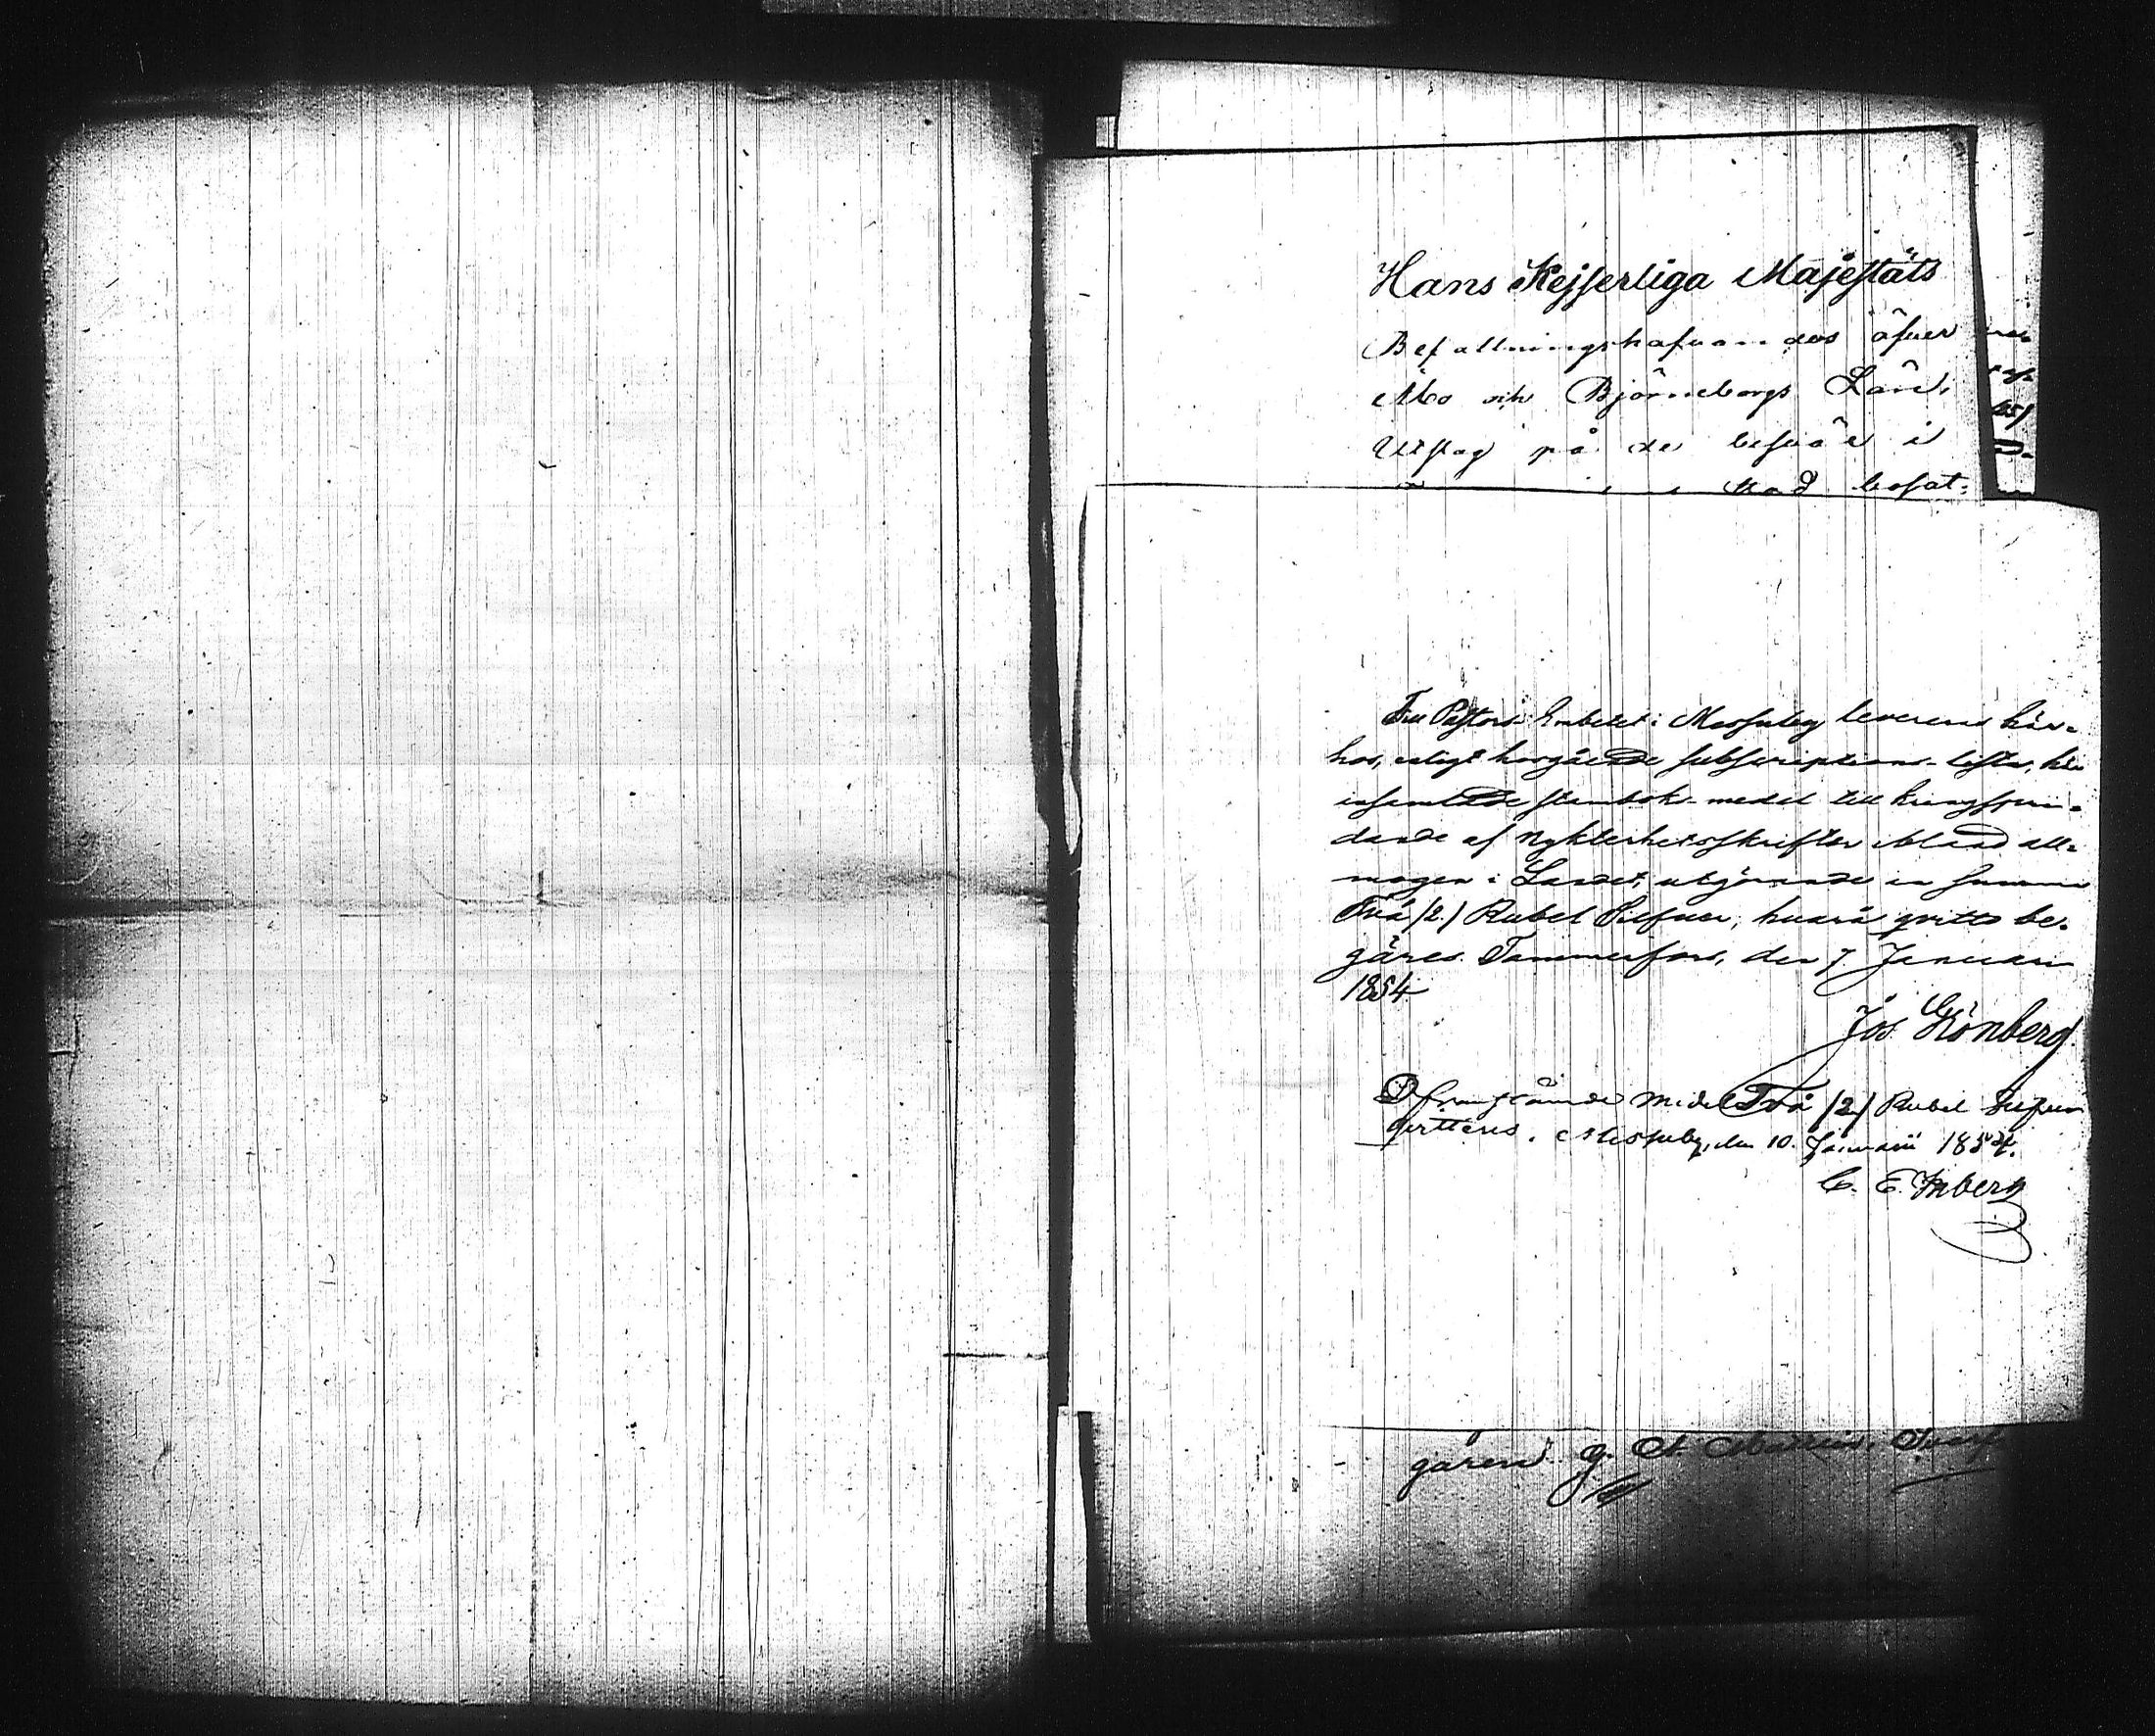 Hans Kejserliga Majestäts
Befallningshafvandes öfver
Åbo och Björneborgs Län,
Utslag på de besvär i
stad bosat:
Till Pastors Embetet i Messuby levereras här-
hos, enligt hosgående subscriptions-lista,
insamlade stambok-medel till kringspri-
dande af nykterhetsskrifter ibland all-
mogen i Landet, utgörande en summa
Två (2.) Rubel Silfver, hvarå qvitto be-
gäres. Tammerfors, den 7. Januari
1854
Jos. Grönberg.
Ofvanstående medel Två (2.) Rubel Silfver
qvitteras. Messuby, den 10. Januarii 1854.
C. E. Inberg